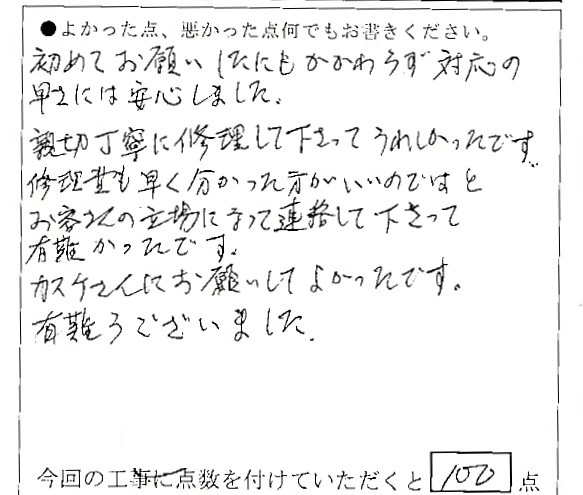 ●よかった点、悪かった点何でもお書きください。
初めてお願いしたにもかかわらず対応の
早さには安心しました。
親切丁寧に修理して下さってうれしかったです。
修理費も早く分かった方がいいのではと
お客さんの立場になって連絡して下さって
有難かったです。
カスケさんにお願いしてよかったです。
有難うございました。
今回の工事に点数を付けていただくと 100 点